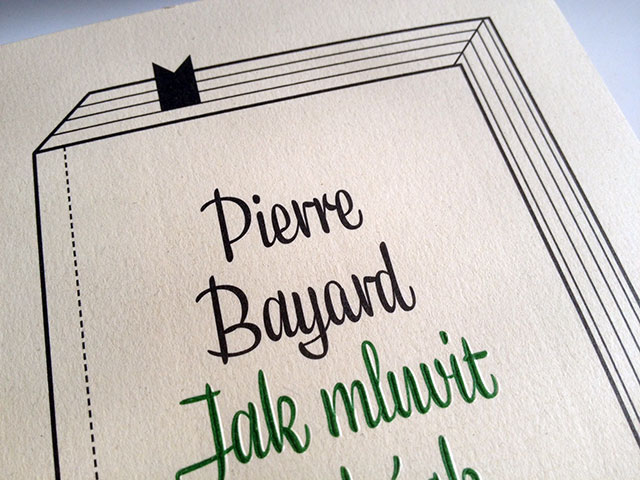 Pierre
Bayard
Jak mluvit